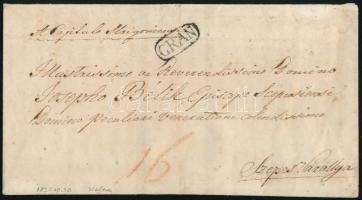 A Capitulo Strigoniensi
GRAN
Illustrissimo ac Reverendissimo Domino
Josepho Bélik Episcopo Scepusiensi
Domino peculiari veneratione colendissimo
16
Szepes Várallya